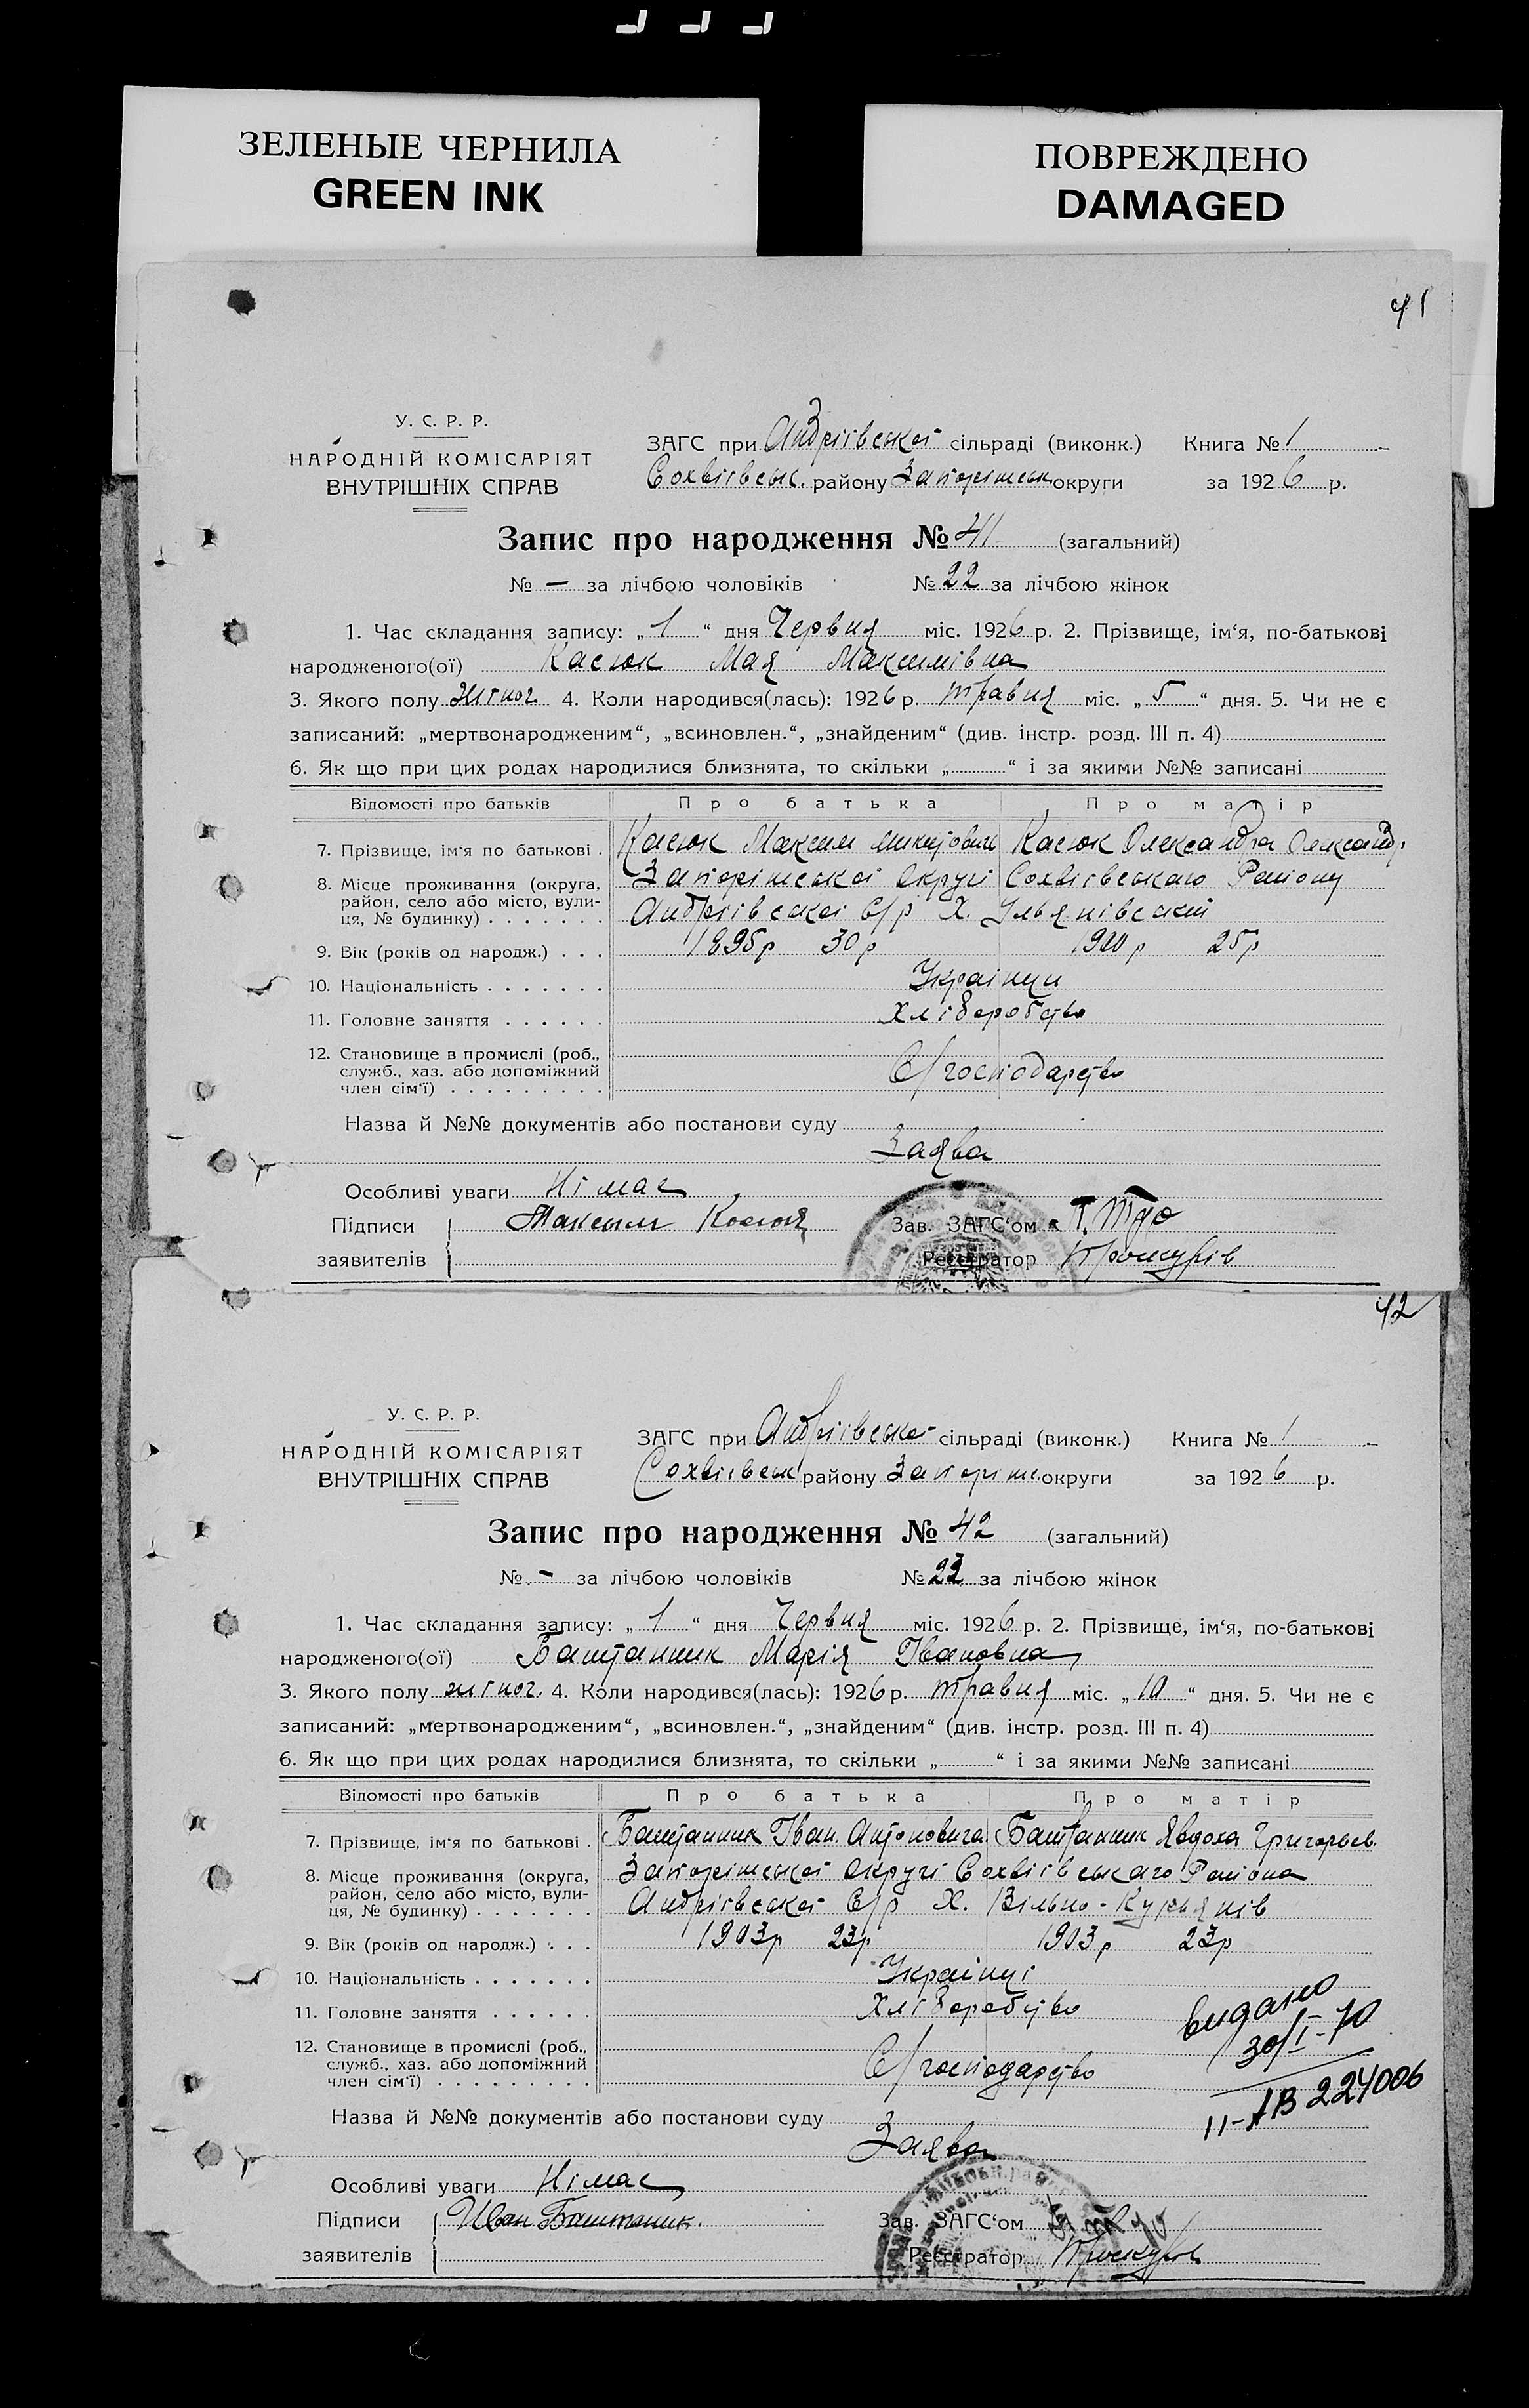 ЗЕЛЕНЫЕ ЧЕРНИЛА
GREEN INK
ПОВРЕЖДЕНО
DAMAGED
41
У. С. Р. Р.
НАРОДНІЙ КОМІСАРІЯТ
ВНУТРІШНІХ СПРАВ
ЗАГС при Андріівськоі сільраді (виконк.) Книга № 1
Сохвіівськ. району Запоріжськ округи за 1926 р.
Запис про народження № 41 (загальний)
№ — за лічбою чоловіків № 22 за лічбою жінок
1. Час складання запису: „ 1 “ дня Червня міс. 1926 р. 2. Прізвище, ім‘я, по-батькові
народженого(ої) Касюк Мая Максимівна
3. Якого полу жіноч. 4. Коли народився(лась): 1926 р. травня міс. „ 5 “ дня. 5. Чи не є
записаний: „мертвонародженим“, „всиновлен.“, „знайденим“ (див. інстр. розд. III п. 4)
6. Як що при цих родах народилися близнята, то скільки „ “ і за якими №№ записані
Відомості про батьків Про батька Про матір
7. Прізвище, ім‘я по батькові . Касюк Максим Микитович Касюк Олександра Олександр.
8. Місце проживання (округа, Запоріжськоі Округі Сохвіівського Раиону
район, село або місто, вули-
ця, № будинку) . . . . . . . Андріівськоі С/р Х. Ульянівський
9. Вік (років од народж.) . . . 1895р 30р 1900р 25р
10. Національність . . . . . . . Украінци
11. Головне заняття . . . . . . Хліборобство
12. Становище в промислі (роб.,
служб., хаз. або допоміжний С/господарство
член сім‘ї) . . . . . . . . .
Назва й №№ документів або постанови суду
Заява
Особливі уваги Німає
Підписи Максим Касюк Зав. ЗАГС‘ом
заявителів Реєстратор
42
У. С. Р. Р.
НАРОДНІЙ КОМІСАРІЯТ
ВНУТРІШНІХ СПРАВ
ЗАГС при Андріівськоі сільраді (виконк.) Книга № 1
Сохвіівськ району Запоріжс округи за 1926 р.
Запис про народження № 42 (загальний)
№ - за лічбою чоловіків № 23 за лічбою жінок
1. Час складання запису: „ 1 “ дня Червня міс. 1926 р. 2. Прізвище, ім‘я, по-батькові
народженого(ої) Баштанник Марія Івановна
3. Якого полу жіноч. 4. Коли народився(лась): 1926 р. травня міс. „ 10 “ дня. 5. Чи не є
записаний: „мертвонародженим“, „всиновлен.“, „знайденим“ (див. інстр. розд. III п. 4)
6. Як що при цих родах народилися близнята, то скільки „ “ і за якими №№ записані
Відомості про батьків Про батька Про матір
7. Прізвище, ім‘я по батькові . Баштанник Іван Антоновича Баштанник Явдоха Григорьев.
8. Місце проживання (округа, Запоріжськоі Округі Сохвіівського Раиона
район, село або місто, вули-
ця, № будинку) . . . . . . . Андріівськоі С/р Х. Вільно-Кур'янів
9. Вік (років од народж.) . . . 1903р 23р 1903р 23р
10. Національність . . . . . . . Украінці
11. Головне заняття . . . . . . Хліборобство
видано
30/I-70
12. Становище в промислі (роб.,
служб., хаз. або допоміжний С/господарство
член сім‘ї) . . . . . . . . .
II-АВ 224006
Назва й №№ документів або постанови суду
Заява
Особливі уваги Німає
Підписи Иван Баштаник. Зав. ЗАГС‘ом
заявителів Реєстратор